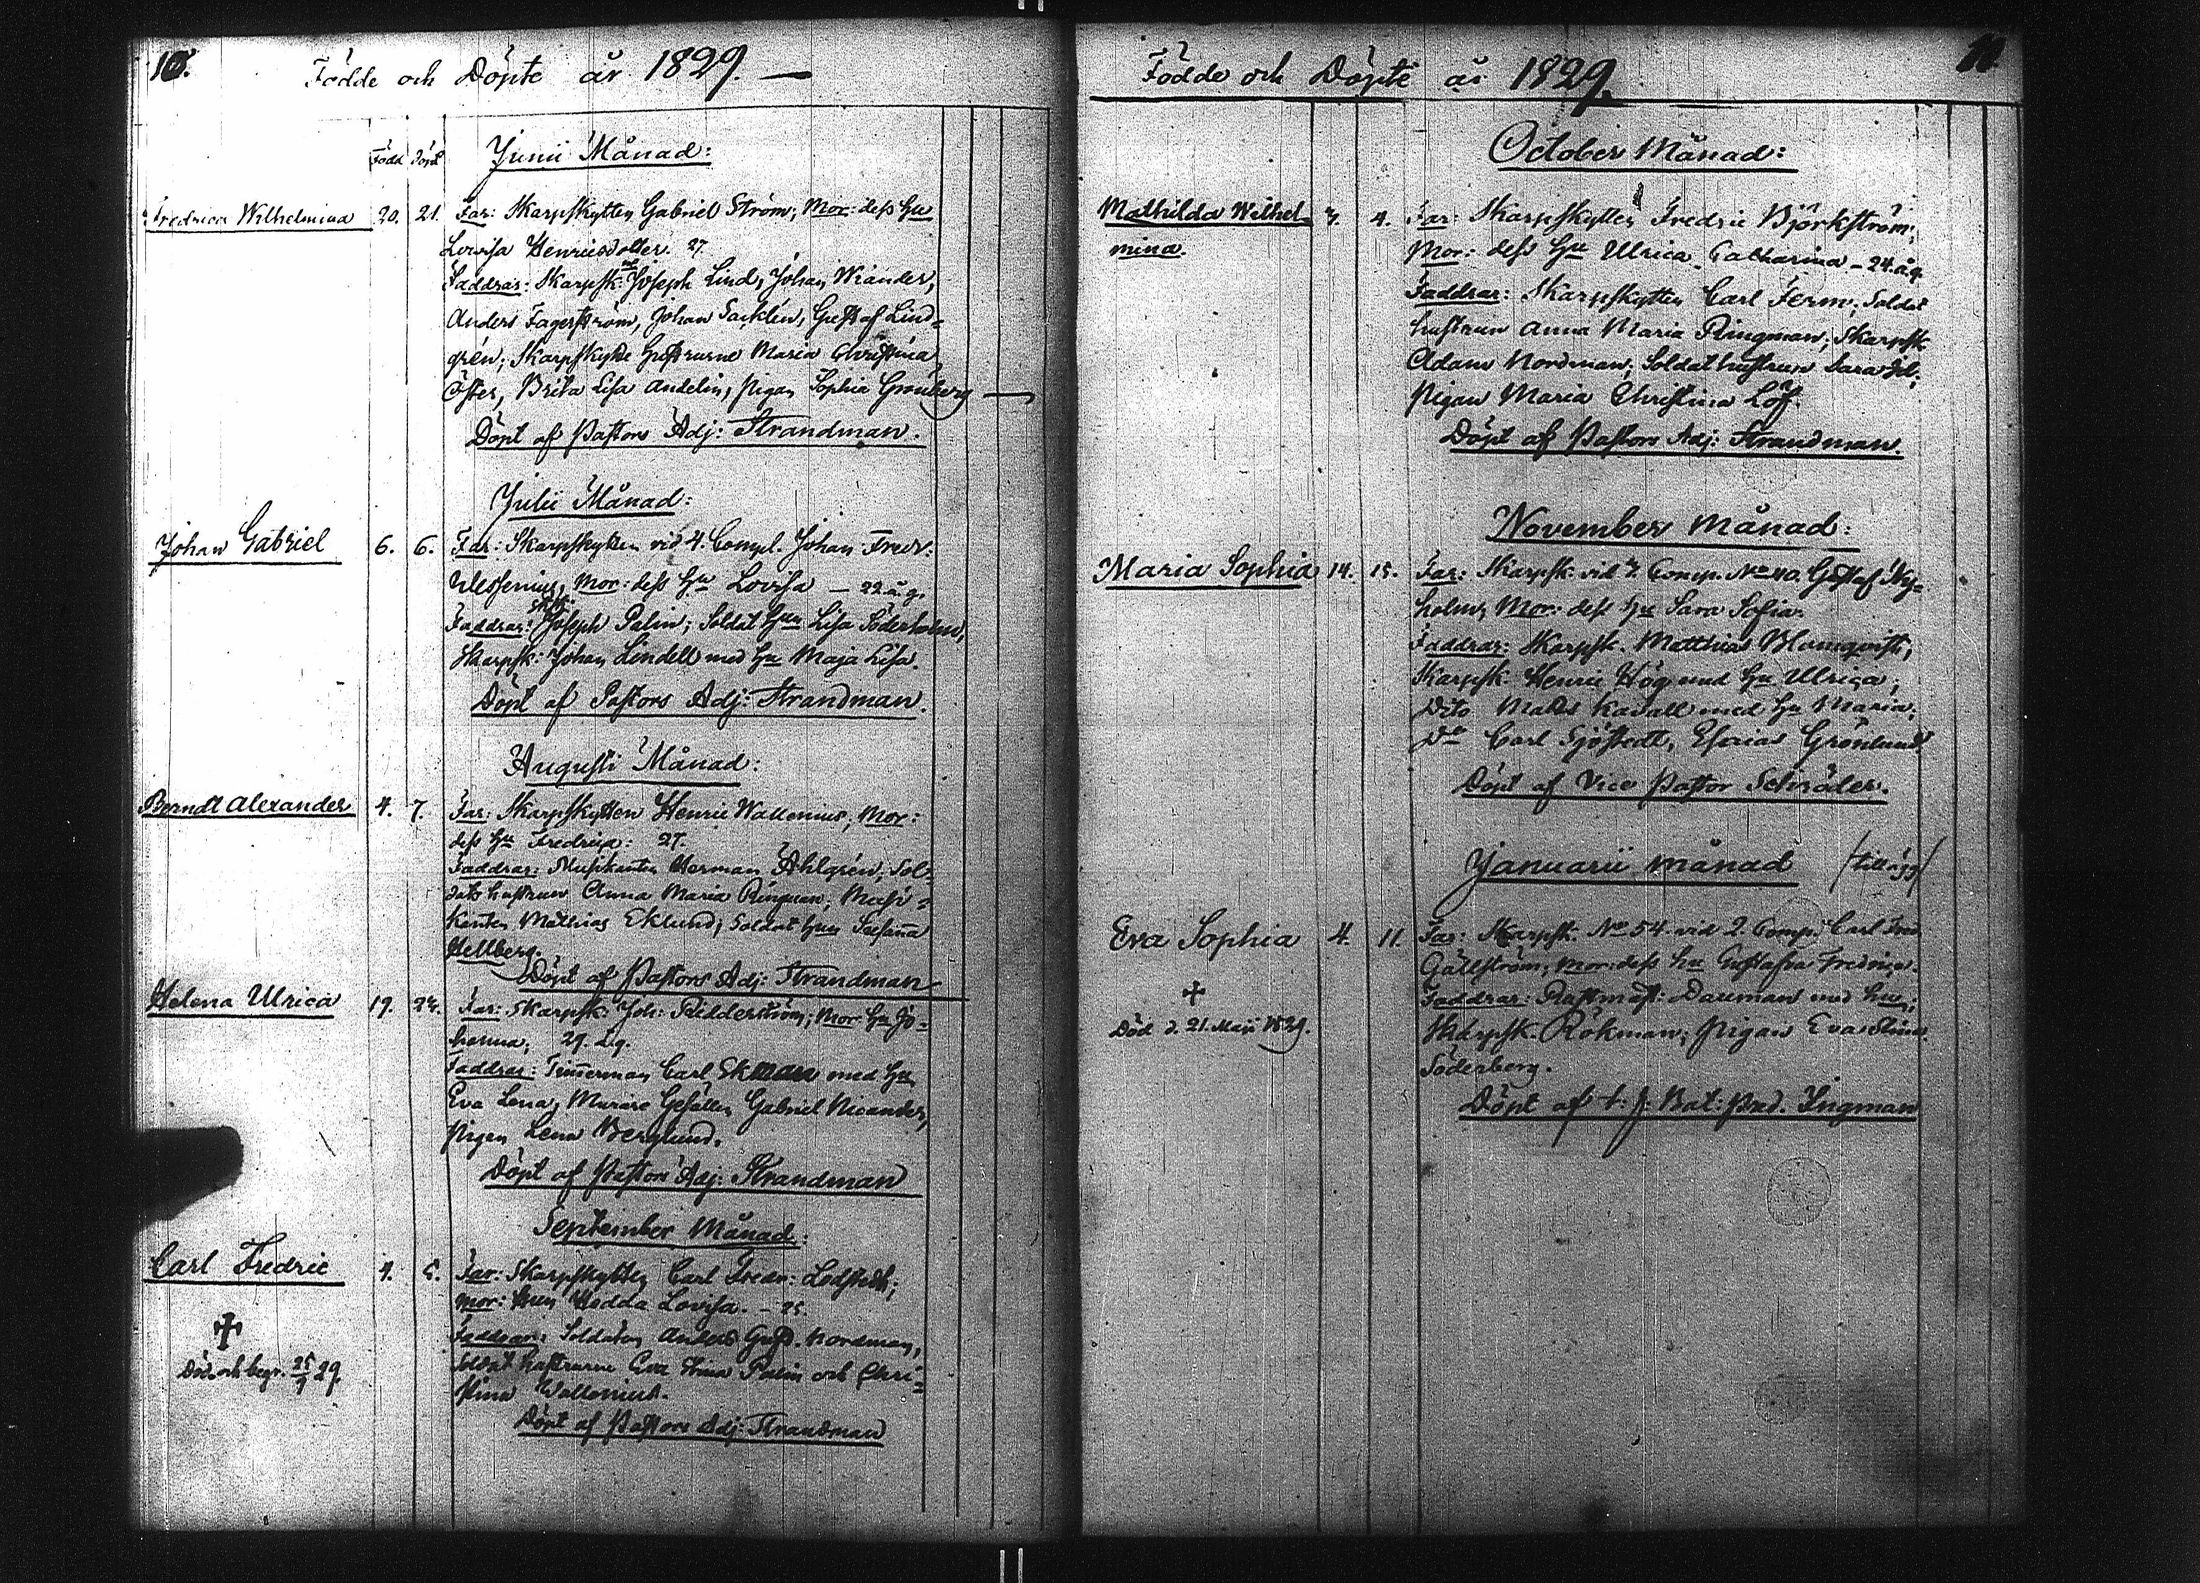 10.
Födde och Döpte år 1829. —
Född Döpt
Junii Månad:
Fredrica Wilhelmina 20. 21. Far: Skarpskytten Gabriel Ström; Mor: dess Hu
Lovisa Henricsdotter. 27.
Faddrar: Skarpsk: Joseph Lind, Johan Wiander,
Anders Fagerström, Johan Sacklén, Gustaf Lind=
grén; Skarpskytte Hustrurne Maria Christina
Öster, Brita Lisa Andelin, pigan Sophia Grönberg —
Döpt af Pastors Adj: Strandman.
Julii Månad:
Johan Gabriel 6. 6. Far: Skarpskytten vid 4. Comp. Johan Fredr:
Mor: dess Hu Lovisa — 22 å. g.
Faddrar: Skpsk: Joseph Palin; Soldat Hun Lisa Söderholm,
Skarpsk: Johan Lindell med Hu Maja Lisa.
Döpt af Pastors Adj: Strandman.
Augusti Månad:
Berndt Alexander 4. 7. Far: Skarpskytten Henric Wallenius; Mor:
dess Hu Fredrica: 27.
Faddrar: Musikanten Herman Ahlgrén; Sol=
dats hustrun Anna Maria Ringman, Musi=
kanten Mathias Eklund; Soldat Hun Susanna
Hellberg.
Döpt af Pastors Adj: Strandman
Helena Ulrica 19. 24. Far: Skarpsk: Joh: Ridderström; Mor Hu Jo=
hanna; 29. å. g.
Faddrar: Timerman Carl Ekman med Hu
Eva Lena, Murare Gesällen Gabriel Nicander,
Pigan Lena Berglund.
Döpt af Pastors Adj: Strandman
September Månad:
Carl Fredric 4. 5. Far: Skarpskytten Carl Fredr: Lodstedt;
Mor: Hun Hedda Lovisa. — 25.
Faddrar: Soldaten Anders Gust. Nordman,
Soldat hustrurne Eva Stina Palin och Chri=
stina Wallenius.
Död och begr. 25/9 29.
Döpt af Pastors Adj: Strandman
11.
Födde och Döpte år 1829.
October Månad:
Mathilda Wilhel= 3. 4. Far: Skarpskytten Fredric Björkström;
mina. Mor: dess Hu Ulrica Catharina — 24. å. g.
Faddrar: Skarpskytten Carl Ferm; Soldat
hustrun Anna Maria Ringman; Skarpsk
Adam Nordman; Soldat hustrun Sara
Pigan Maria Christina Löf.
Döpt af Pastors Adj: Strandman.
November Månad:
Maria Sophia 14. 15. Far: Skarpsk. vid 2. Comp. No 40. Gustaf Ny=
holm; Mor: dess Hu Sara Sofia.
Faddrar: Skarpsk. Matthias Blomqvist,
Skarpsk. Henric Hög med Hu Ulrica;
Dito Mats Kavall med Hu Maria;
Do Carl Sjöstedt, Esaias Grönlund
Döpt af Vice Pastor Schröder.
Januarii Månad /tillägg/
Eva Sophia 4. 11. Far: Skarpsk. No 54. vid 2. Comp. Carl Fred
Gällström; Mor: dess Hu Gustafva Fredrica.
Faddrar: Rustmäst: Dauman med Hu;
Skarpsk. Rökman; Pigan Eva Stina
Söderberg.
Död d. 21. Maji 1829.
Döpt af t. f. Bat: Pred. Ingman